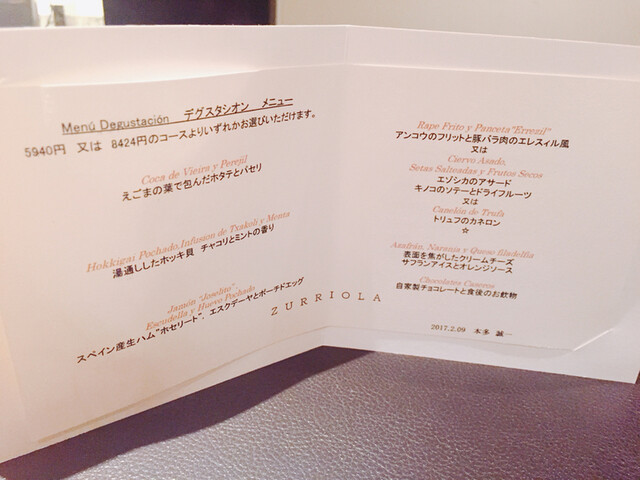 Menú Degustación デグスタシオン メニュー
5940円 又は 8424円のコースよりいずれかお選びいただけます。
Coca de Vieira y Perejil
えごまの葉で包んだホタテとパセリ
Hokkigai Pochado,Infusion de Txakoli y Menta
湯通ししたホッキ貝 チャコリとミントの香り
Jamón "Joselito",
Escudella y Huevo Pochado
スペイン産生ハム"ホセリート", エスクデーヤとポーチドエッグ
ZURRIOLA
Rape Frito y Panceta"Errezil"
アンコウのフリットと豚バラ肉のエレスィル風
又は
Ciervo Asado,
Setas Salteadas y Frutos Secos
エゾシカのアサード
キノコのソテーとドライフルーツ
又は
Canelón de Trufa
トリュフのカネロン
☆
Azafrán, Naranja y Queso filadelfia
表面を焦がしたクリームチーズ
サフランアイスとオレンジソース
Chocolates Caseros
自家製チョコレートと食後のお飲物
2017.2.09 本多 誠一